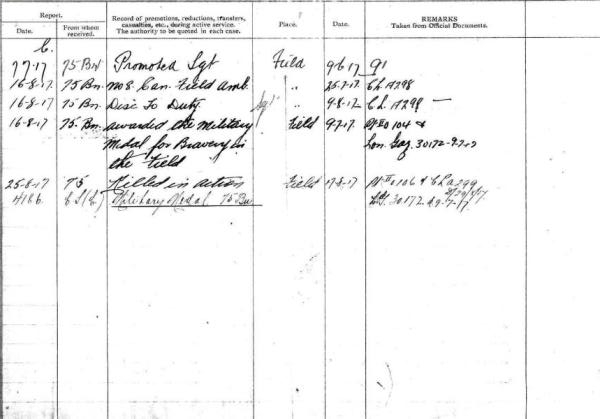 Report.
Record of promotions, reductions, transfers, casualties, etc., during active service. The authority to be quoted in each case.
Place.
Date.
REMARKS
Taken from Official Documents.
Date.
From whom received.
C.
7-7-17 75 Bn Promoted Sgt Field 9-6-17
16-8-17. 75 Bn. No 8. Can. Field Amb. " 25-7-17 A298
16-8-17. 75 Bn. Disc To Duty. Sgt " 9-8-17 A298 —
16-8-17 75. Bn. awarded the Military Field 9-7-17 104 &
Medal for Bravery in Lon. Gaz. 30172-9-7-17
the Field
25-8-17 75 Killed in action Field 17-8-17 & A299
Military Medal 75 Bn 30172 d 9-7-17.